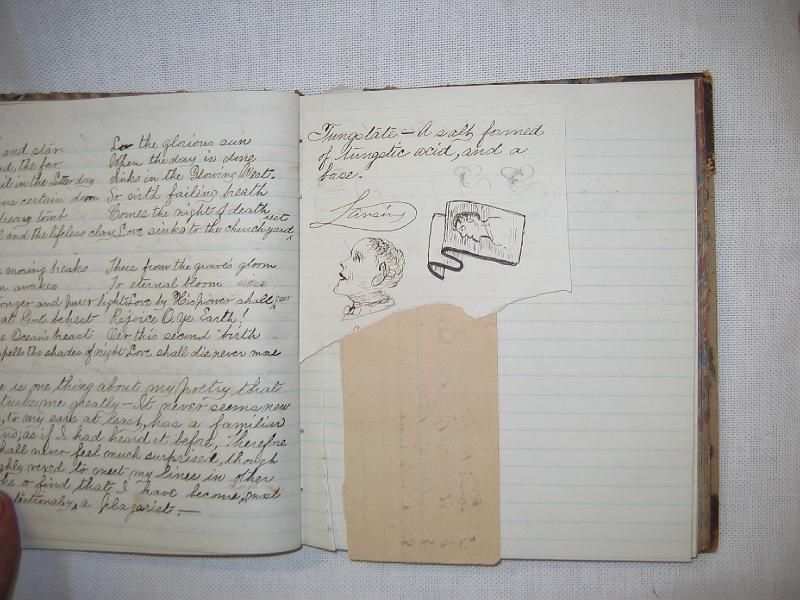 and star
the far
in the latter day
certain doom
dreary tomb
and the lifeless clay,
Lo the glorious sun
When the day is done
Sinks in the Glowing West.
So with failing breath
Comes the night of death
Love sinks to the churchyard rest
morning breaks
awakes
and purer light
at God's behest
Ocean's breast
the shades of night
Thus from the grave's gloom
To eternal bloom
Love by His power shall
Rejoice O ye Earth!
O'er this second birth
Love shall die never more
is one thing about my poetry that
me greatly — It never seems new
to my ears at least, has a familiar
as if I had heard it before. Therefore
shall never feel much surprised, though
vexed to meet my lines in other
or find that, I have become,
a plagarist. —
Tungstate — A salt formed
of tungstic acid, and a
base.
Lansing